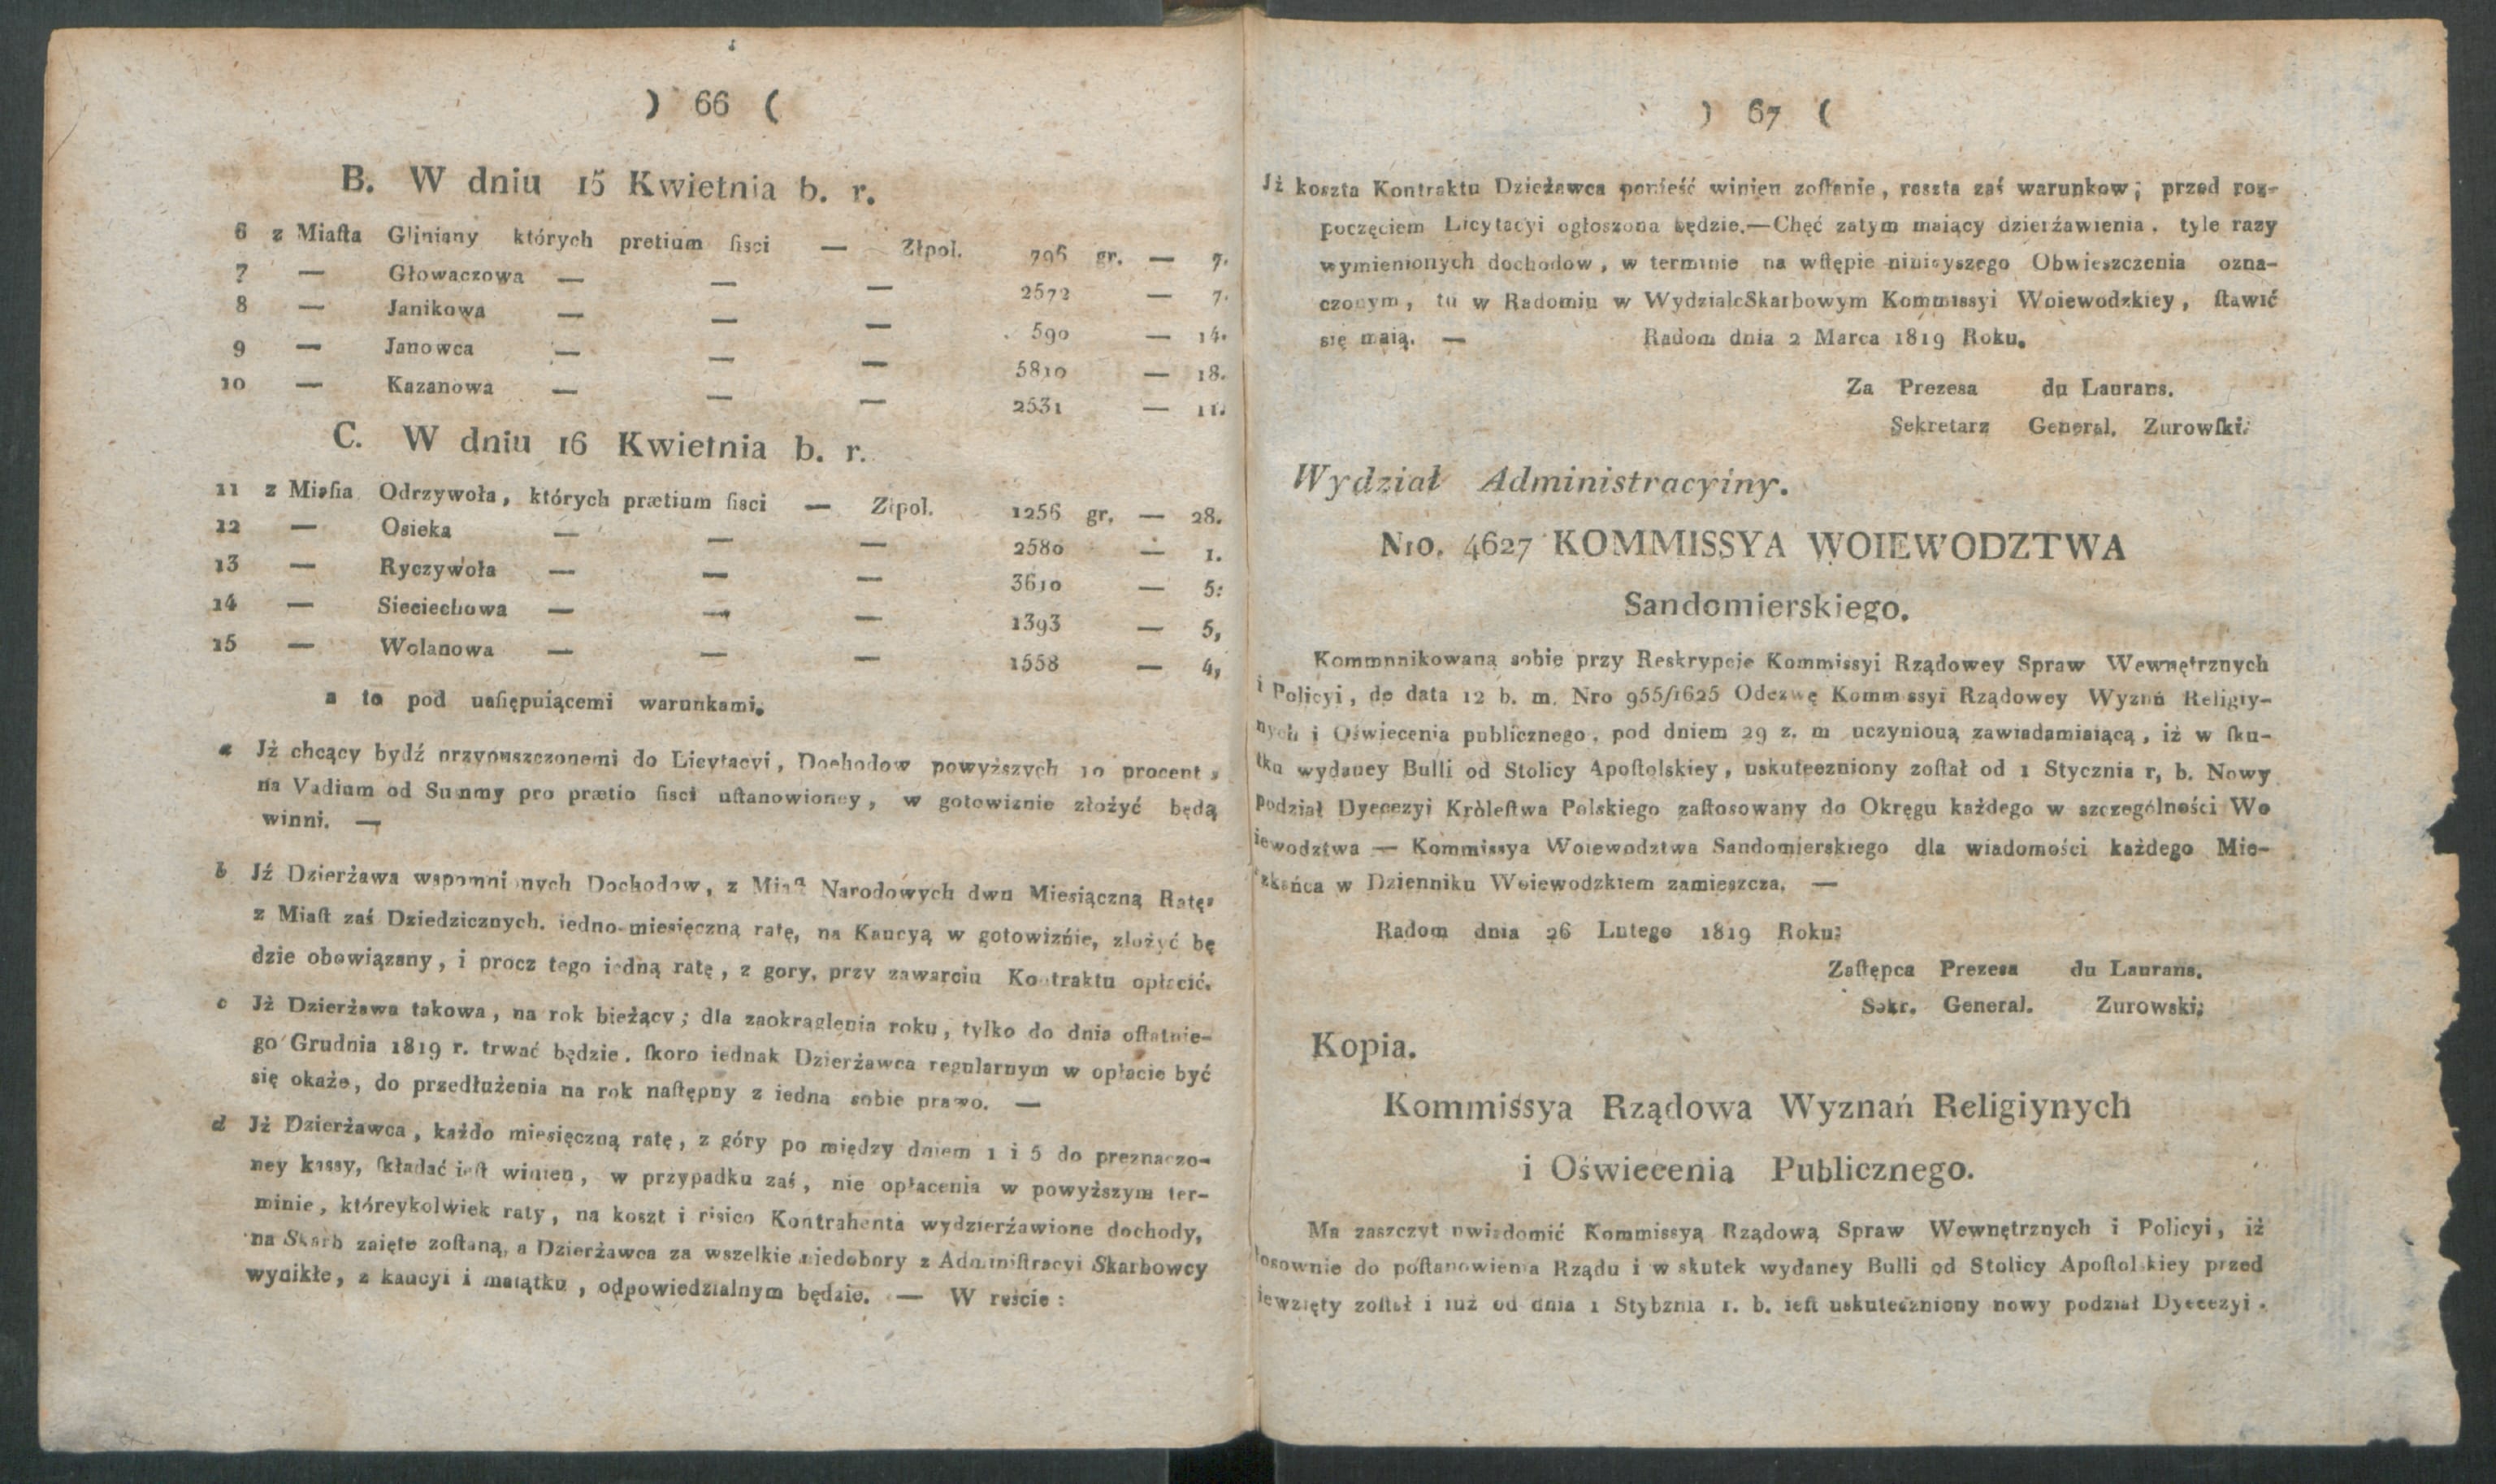 ) 66 (
B. W dniu 15 Kwietnia b. r.
6 z Miaſta Gliniany których pretium fisci — Złpol. 796 gr. — 7.
7 — Głowaczowa — — — 2572 — 7.
8 — Janikowa — — — 590 — 14.
9 — Janowca — — — 5810 — 18.
10 — Kazanowa — — — 2531 — 11.
C. W dniu 16 Kwietnia b. r.
11 z Miaſta Odrzywoła, których prætium fisci — Złpol. 1256 gr. — 28.
12 — Osieka — — — 2580 — 1.
13 — Ryczywoła — — — 3610 — 5:
14 — Sieciechowa — — — 1393 — 5,
15 — Wolanowa — — — 1558 — 4,
a to pod naſtępuiącemi warunkami.
a Jż chcący bydź przypuszczonemi do Licytacyi, Dochodow powyższych 10 procent,
na Vadium od Summy pro prætio fisci uſtanowioney, w gotowiznie złożyć będą
winni. —
b Jź Dzierżawa wspomnionych Dochodow, z Miaſt Narodowych dwu Miesiączną Ratę,
z Miaſt zaś Dziedzicznych. iedno-miesięczną ratę, na Kaucyą w gotowiźnie, złożyć bę
dzie obowiązany, i procz tego iedną ratę, z gory, przy zawarciu Kontraktu opłacić.
c Jż Dzierżawa takowa, na rok bieżący; dla zaokrąglenia roku, tylko do dnia oſtatnie-
go Grudnia 1819 r. trwać będzie. ſkoro iednak Dzierżawca regularnym w opłacie być
się okaże, do przedłużenia na rok naſtępny z iedna sobie prawo. —
d Jż Dzierżawca, każdo miesięczną ratę, z góry po między dniem 1 i 5 do preznaczo-
ney kassy, ſkładać ieſt winien, w przypadku zaś, nie opłacenia w powyższym ter-
minie, któreykolwiek raty, na koszt i risico Kontrahenta wydzierźawione dochody,
na Skarb zaięte zoſtaną, a Dzierżawca za wszelkie niedobory z Adminiſtracyi Skarbowey
wynikłe, z kaucyi i maiątku, odpowiedzialnym będzie. — W reście:
) 67 (
Jż koszta Kontraktu Dzieżawca ponieść winien zoſtanie, reszta zaś warunkow; przed roz-
poczęciem Licytacyi ogłoszona będzie.—Chęć zatym maiący dzierżawienia. tyle razy
wymienionych dochodow, w terminie na wſtępie ninieyszego Obwieszczenia ozna-
czonym, tu w Radomiu w WydzialeSkarbowym Kommissyi Woiewodzkiey, ſtawić
się maią. — Radom dnia 2 Marca 1819 Roku.
Za Prezesa du Laurans.
Sekretarz General. Zurowſki.
Wydział Administracyiny.
Nro. 4627 KOMMISSYA WOIEWODZTWA
Sandomierskiego.
Kommunikowaną sobie przy Reskrypcie Kommissyi Rządowey Spraw Wewnętrznych
i Policyi, de data 12 b. m. Nro 955/1625 Odezwę Kommissyi Rządowey Wyznń Religiy-
nych i Oświecenia publicznego. pod dniem 29 z. m uczynioną zawiadamiaiącą, iż w ſku-
tku wydaney Bulli od Stolicy Apoſtolskiey, uskuteezniony zoſtał od 1 Stycznia r, b. Nowy
Podział Dyecezyi Kròleſtwa Polskiego zaſtosowany do Okręgu każdego w szczególności Wo
iewodztwa — Kommissya Woiewodztwa Sandomierskiego dla wiadomości każdego Mie-
szkańca w Dzienniku Woiewodzkiem zamieszcza. —
Radom dnia 26 Lutego 1819 Roku:
Zaſtępca Prezesa du Laurans.
Sekr. General. Zurowski;
Kopia.
Kommissya Rządowa Wyznań Religiynych
i Oświecenia Publicznego.
Ma zaszczyt uwiadomić Kommissyą Rządową Spraw Wewnętrznych i Policyi, iż
ſosownie do poſtanowienia Rządu i w skutek wydaney Bulli od Stolicy Apoſtolskiey przed
iewzięty zoſtał i iuż od dnia 1 Stybznia r. b. ieſt uskuteczniony nowy podział Dyecezyi.